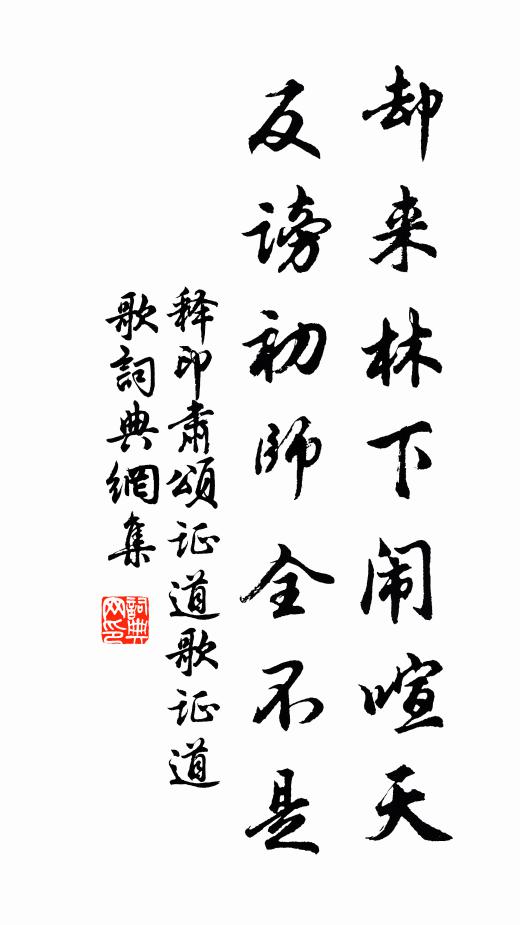 却来林下闹喧天
反谤初师全不是
释印肃颂证道歌证道
歌詞典網集
詞典
网印